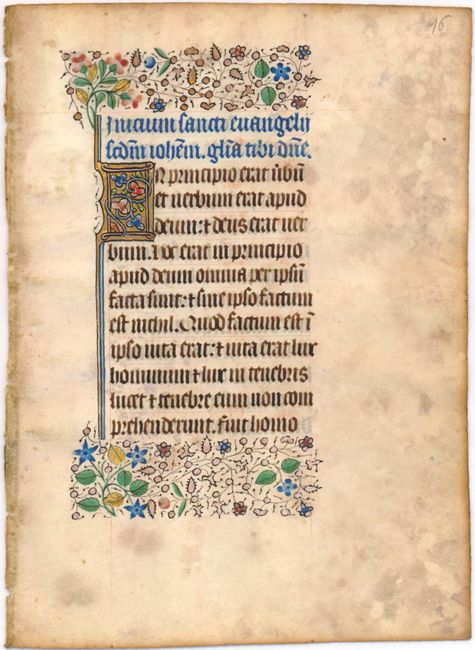 16
Inicium sancti evangelij
scdm iohem. glia tibi dne.
IN principio erat ūbū
et verbum erat apud
deum: ⁊ deus erat ver
bum. hoc erat in principio
apud deum omnia per ipsū
facta sunt: ⁊ sine ipso factum
est nichil. Quod factum est ī
ipso vita erat: ⁊ vita erat lux
hominum ⁊ lux in tenebris
lucet ⁊ tenebre eum non com
prehenderunt. fuit homo